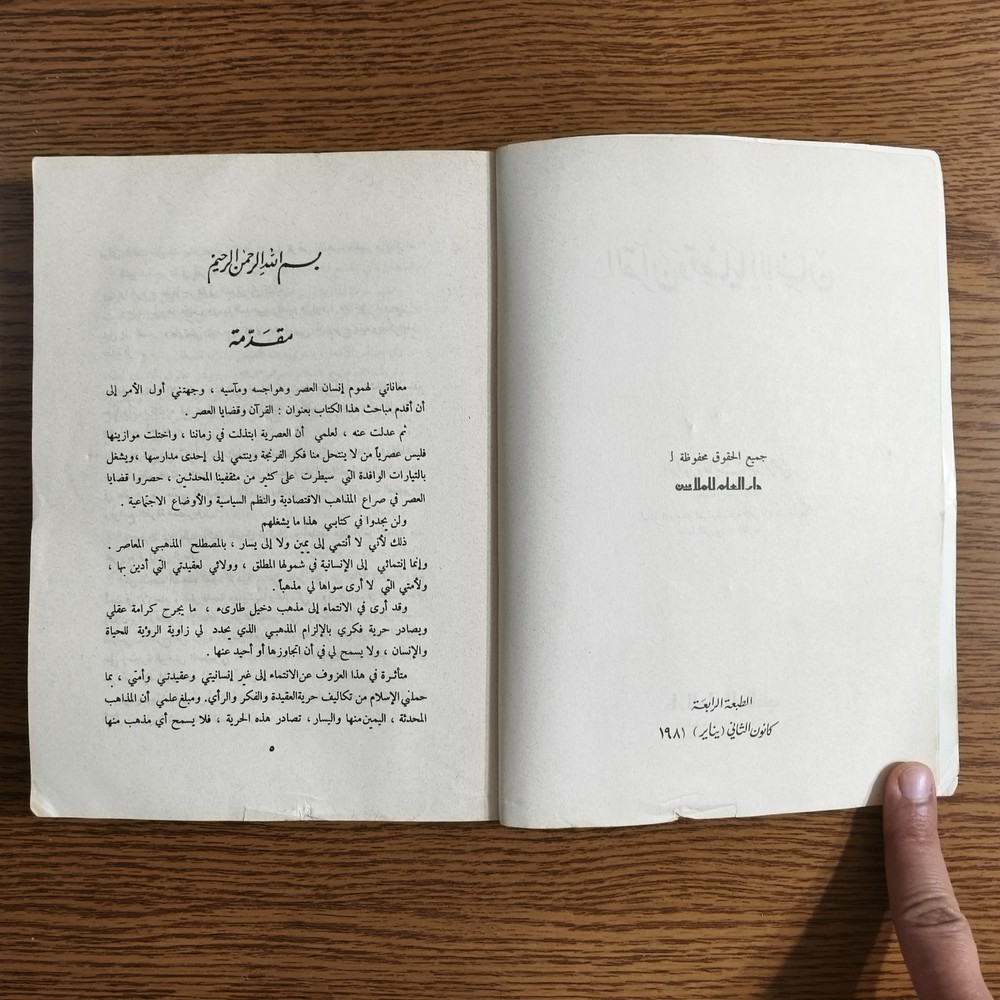 جميع الحقوق محفوظة ل
دار العلم للملايين
الطبعة الرابعة
كانون الثاني (يناير) ١٩٨١
بسم الله الرحمن الرحيم
مقدّمة
معاناتي لهموم إنسان العصر وهواجسه ومآسيه ، وجهتني أول الأمر إلى
أن أقدم مباحث هذا الكتاب بعنوان : القرآن وقضايا العصر .
ثم عدلت عنه ، لعلمي أن العصرية ابتذلت في زماننا ، واختلت موازينها
فليس عصرياً من لا ينتحل منا فكر الفرنجة وينتمي إلى إحدى مدارسها ، ويشغل
بالتيارات الوافدة التي سيطرت على كثير من مثقفينا المحدثين ، حصروا قضايا
العصر في صراع المذاهب الاقتصادية والنظم السياسية والأوضاع الاجتماعية .
ولن يجدوا في كتابي هذا ما يشغلهم
ذلك لأني لا أنتمي إلى يمين ولا إلى يسار ، بالمصطلح المذهبي المعاصر .
وإنما إنتمائي إلى الإنسانية في شمولها المطلق ، وولائي لعقيدتي التي أدين بها ،
ولأمتي التي لا أرى سواها لي مذهباً .
وقد أرى في الانتماء إلى مذهب دخيل طارىء ، ما يجرح كرامة عقلي
ويصادر حرية فكري بالإلزام المذهبي الذي يحدد لي زاوية الرؤية للحياة
والإنسان ، ولا يسمح لي في أن اتجاوزها أو أحيد عنها .
متأثرة في هذا العزوف عن الانتماء إلى غير إنسانيتي وعقيدتي وأمتي ، بما
حملني الإسلام من تكاليف حرية العقيدة والفكر والرأي. ومبلغ علمي أن المذاهب
المحدثة ، اليمين منها واليسار، تصادر هذه الحرية ، فلا يسمح أي مذهب منها
٥